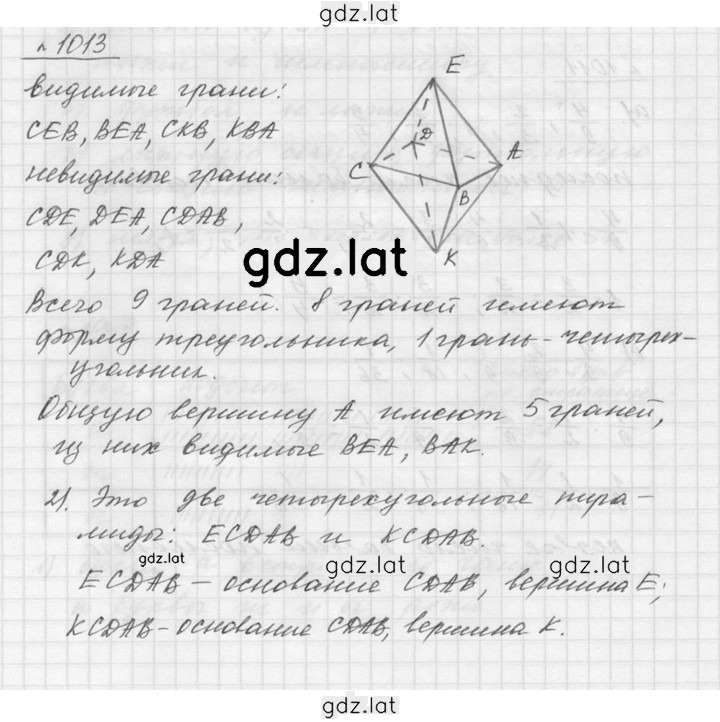 gdz.lat
№ 1013
видимые грани:
CEB, BEA, CKB, KBA
невидимые грани:
CDE, DEA, CDAB,
CDK, KDA
E
D
C
A
B
K
gdz.lat
Всего 9 граней. 8 граней имеют
форму треугольника, 1 грань - четырех-
угольник.
Общую вершину A имеют 5 граней,
из них видимые BEA, BAK.
21. Это две четырехугольные пира-
миды: ECDAB и KCDAB.
gdz.lat
gdz.lat
ECDAB – основание CDAB, вершина E;
KCDAB - основание CDAB, вершина K.
gdz.lat